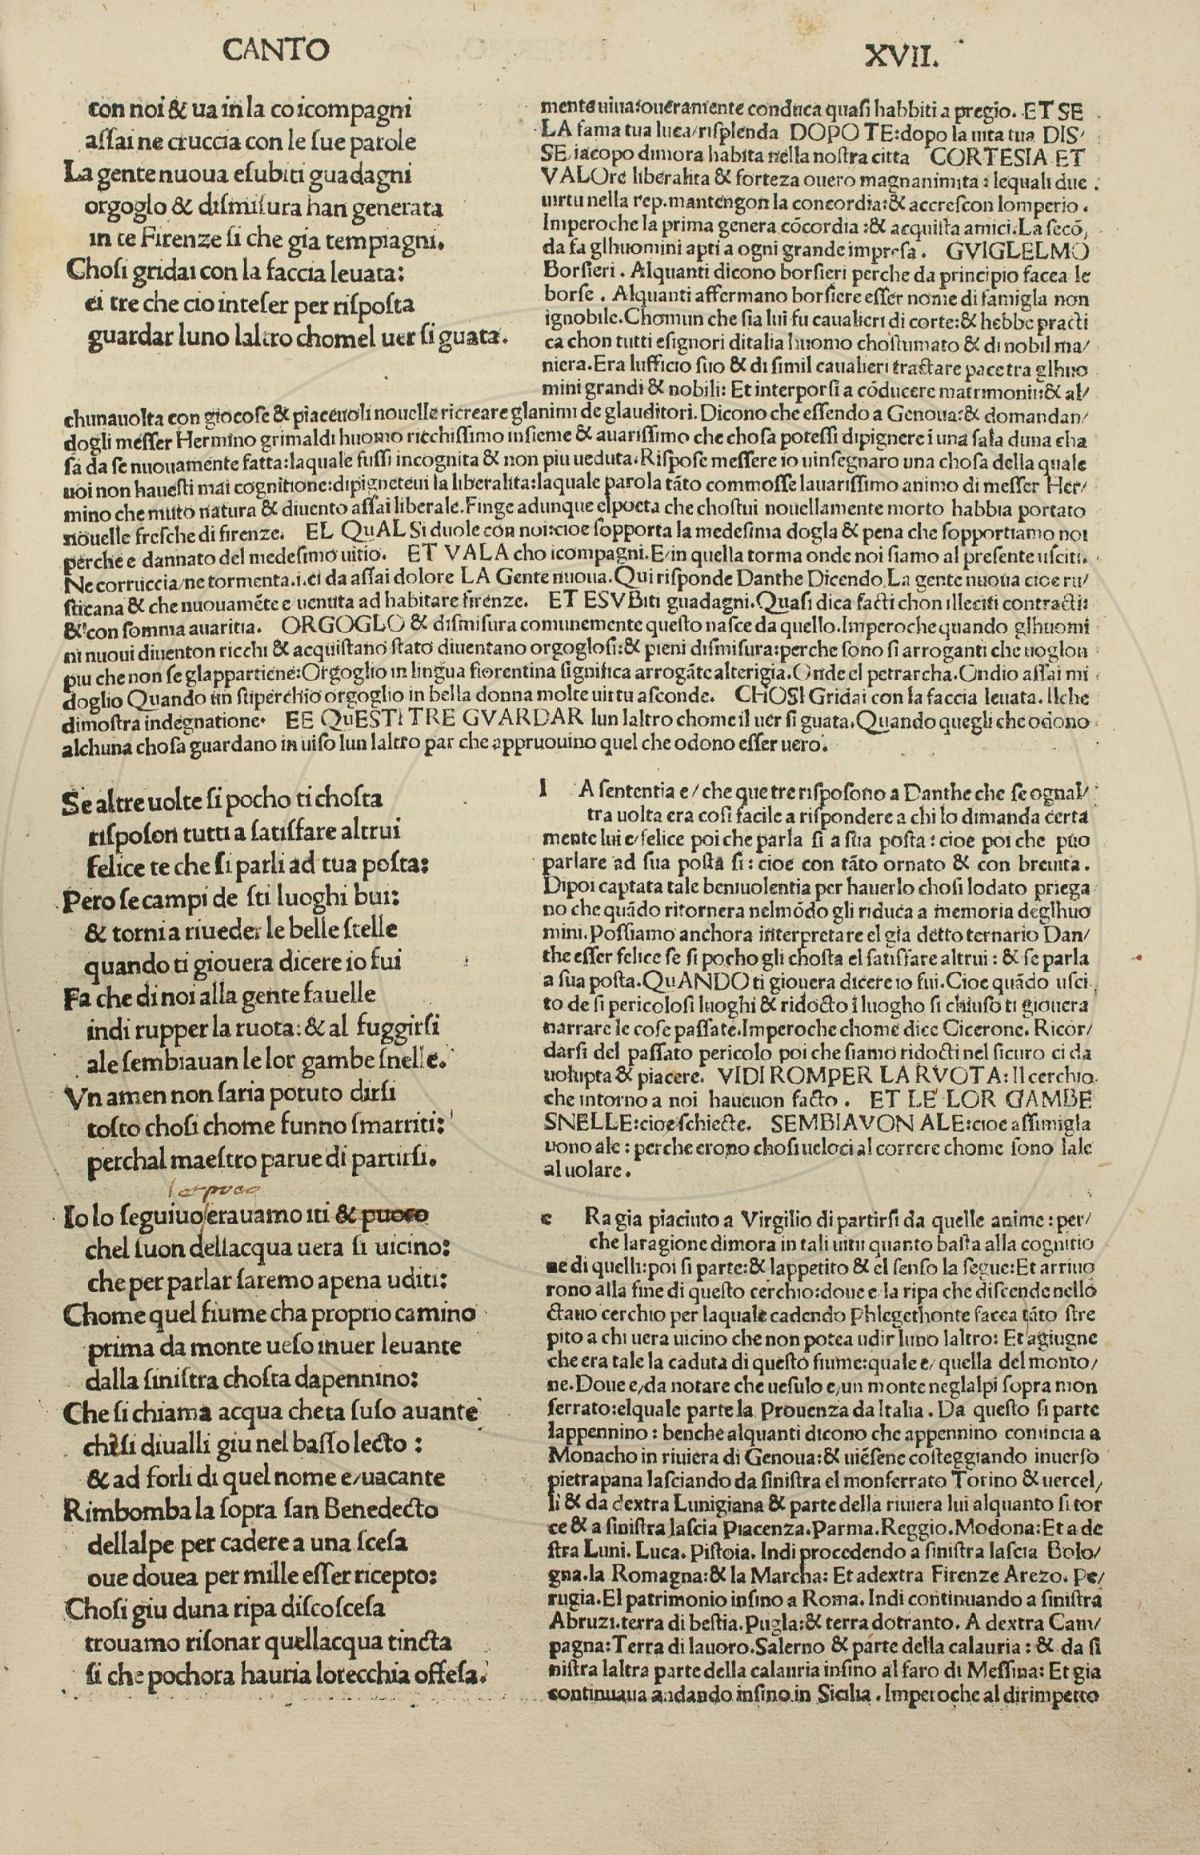 CANTO
XVII.
con noi & ua in la co icompagni
aſſai ne cruccia con le ſue parole
La gente nuoua eſubiti guadagni
orgoglo & diſmiſura han generata
in te Firenze ſi che gia tempiagni.
Choſi gridai con la faccia leuata:
ei tre che cio inteſer per riſpoſta
guardar luno laltro chomel uer ſi guata.
mente uiua: oueramente conduca quaſi habbiti a pregio. ET SE
LA fama tua luca/riſplenda DOPO TE:dopo la uita tua DIS/
SE iacopo dimora habita nella noſtra citta CORTESIA ET
VALOre liberalita & forteza ouero magnanimita: lequali due
uirtu nella rep.mantengon la concordia:& accreſcon lomperio.
Imperoche la prima genera cōcordia:& acquiſta amici.La ſecō,
da fa glhuomini apti a ogni grande impreſa. GVIGLELMO
Borſieri. Alquanti dicono borſieri perche da principio facea le
borſe. Alquanti affermano borſiere eſſer nome di famigla non
ignobile.Chomun che ſia lui fu caualieri di corte:& hebbe practi
ca chon tutti eſignori ditalia huomo choſtumato & di nobil ma/
niera.Era lufficio ſuo & di ſimil caualieri tractare pace tra glhuo
mini grandi & nobili: Et interporſi a cōducere matrimonii:& al/
chunauolta con giocoſe & piaceuoli nouelle ricreare glanimi de glauditori.Dicono che eſſendo a Genoua:& domandan/
dogli meſſer Hermino grimaldi huomo ricchiſſimo inſieme & auariſſimo che choſa poteſſi dipignere ī una ſala duna cha
ſa da ſe nuouamente fatta:laquale fuſſi incognita & non piu ueduta.Riſpoſe meſſere io uinſegnaro una choſa della quale
uoi non haueſti mai cognitione:dipigneteui la liberalita:laquale parola tāto commoſſe lauariſſimo animo di meſſer Her-
mino che muto natura & diuento aſſai liberale.Finge adunque elpoeta che choſtui nouellamente morto habbia portato
nouelle freſche di firenze. EL QuAL Si duole con noi:cioe ſopporta la medeſima dogla & pena che ſopportiamo noi
perche e dannato del medeſimo uitio. ET VALA cho icompagni.E/in quella torma onde noi ſiamo al preſente uſciti.
Ne corruccia/ne tormenta.i.ci da aſſai dolore LA Gente nuoua.Qui riſponde Danthe Dicendo.La gente nuoua cioe ru/
ſticana & che nuouamēte e uenuta ad habitare firenze. ET ESVBiti guadagni.Quaſi dica facti chon illeciti contracti:
& con ſomma auaritia. ORGOGLO & diſmiſura comunemente queſto naſce da quello.Imperoche quando glhuomi
ni nuoui diuenton ricchi & acquiſtano ſtato diuentano orgogloſi:& pieni diſmiſura:perche ſono ſi arroganti che uoglon
piu che non ſe glappartiene:Orgoglio in lingua fiorentina ſignifica arrogāte alterigia.Onde el petrarcha.Ondio aſſai mi
doglio Quando un ſuperchio orgoglio in bella donna molte uirtu aſconde. CHOSI Gridai con la faccia leuata. Ilche
dimoſtra indegnatione. EE QuESTI TRE GVARDAR lun laltro chome il uer ſi guata.Quando quegli che odono
alchuna choſa guardano in uiſo lun laltro par che appruouino quel che odono eſſer uero.
Se altre uolte ſi pocho ti choſta
riſpoſon tutti a ſatiſfare altrui
felice te che ſi parli ad tua poſta:
Pero ſe campi de ſti luoghi bui:
& torni a riueder le belle ſtelle
quando ti giouera dicere io fui
Fa che di noi alla gente fauelle
indi rupper la ruota:& al fuggirſi
ale ſembiauan le lor gambe ſnelle.
Vn amen non ſaria potuto dirſi
toſto choſi chome funno ſmarriti:
perchal maeſtro parue di partirſi.
l A ſententia e/ che que tre riſpoſono a Danthe che ſe ognal/
tra uolta era coſi facile a riſpondere a chi lo dimanda certa
mente lui e/felice poi che parla ſi a ſua poſta: cioe poi che puo
parlare ad ſua poſta ſi: cioe con tāto ornato & con breuita.
Dipoi captata tale beniuolentia per hauerlo choſi lodato priega
no che quādo ritornera nelmōdo gli riduca a memoria deglhuo
mini.Poſſiamo anchora interpretare el gia detto ternario Dan/
the eſſer felice ſe ſi pocho gli choſta el ſatiſfare altrui: & ſe parla
a ſua poſta.QuANDO ti giouera dicere io fui.Cioe quādo uſci
to de ſi pericoloſi luoghi & ridocto ī luogho ſi chiuſo ti giouera
narrare le coſe paſſate.Imperoche chome dice Cicerone. Ricor/
darſi del paſſato pericolo poi che ſiamo ridocti nel ſicuro ci da
uolupta & piacere. VIDI ROMPER LA RVOTA: Il cerchio
che intorno a noi haueuon facto. ET LE LOR GAMBE
SNELLE:cioe ſchiecte. SEMBIAVON ALE:cioe aſſimigla
uono ale: perche erono choſi ueloci al correre chome ſono lale
al uolare.
la poco
Io lo ſeguiuo erauamo iti & puoco
chel ſuon dellacqua uera ſi uicino:
che per parlar ſaremo apena uditi:
Chome quel fiume cha proprio camino
prima da monte ueſo inuer leuante
dalla ſiniſtra choſta dapennino:
Che ſi chiama acqua cheta ſuſo auante
chi ſi diualli giu nel baſſo lecto:
& ad forli di quel nome e/uacante
Rimbomba la ſopra ſan Benedecto
dellalpe per cadere a una ſceſa
oue douea per mille eſſer ricepto:
Choſi giu duna ripa diſcoſceſa
trouamo riſonar quellacqua tincta
ſi che pochora hauria lorecchia offeſa.
e Ra gia piaciuto a Virgilio di partirſi da quelle anime: per/
che la ragione dimora in tali uitii quanto baſta alla cognitio
ne di quelli:poi ſi parte:& lappetito & el ſenſo la ſegue:Et arriuo
rono alla fine di queſto cerchio:doue e la ripa che diſcende nello
ctauo cerchio per laquale cadendo Phlegethonte facea tāto ſtre
pito a chi uera uicino che non potea udir luno laltro: Et agiugne
che era tale la caduta di queſto fiume:quale e/ quella del monto/
ne.Doue e/da notare che ueſulo e/un monte neglalpi ſopra mon
ferrato:elquale parte la Prouenza da Italia. Da queſto ſi parte
lappennino: benche alquanti dicono che appennino comincia a
Monacho in riuiera di Genoua:& uiēſene coſteggiando inuerſo
pietrapana laſciando da ſiniſtra el monferrato Torino & uercel/
li & da dextra Lunigiana & parte della riuiera lui alquanto ſi tor
ce & a ſiniſtra laſcia Piacenza.Parma.Reggio.Modona:Et a de
ſtra Luni. Luca. Piſtoia. Indi procedendo a ſiniſtra laſcia Bolo/
gna.la Romagna:& la Marcha: Et adextra Firenze Arezo. Pe/
rugia.El patrimonio inſino a Roma. Indi continuando a ſiniſtra
Abruzi.terra di beſtia.Pugla:& terra dotranto. A dextra Cam/
pagna:Terra di lauoro.Salerno & parte della calauria: & da ſi
niſtra laltra parte della calauria inſino al faro di Meſſina: Et gia
continuaua andando inſino in Sicilia. Imperoche al dirimpetto